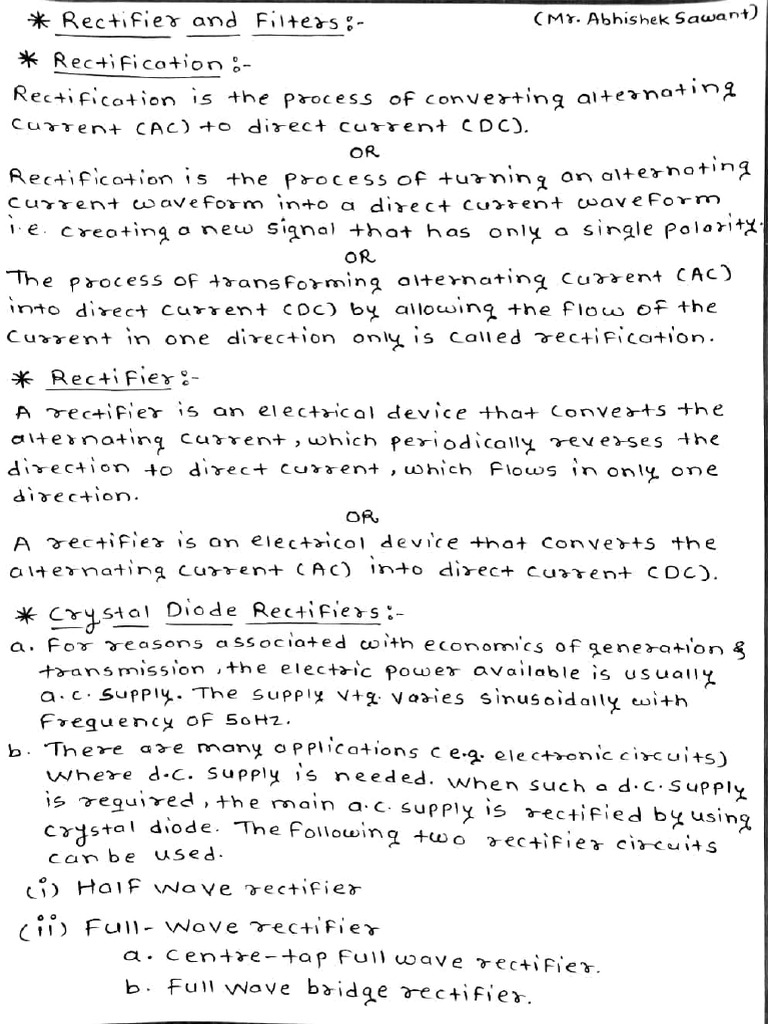 * Rectifier and Filters:-
(Mr. Abhishek Sawant)
* Rectification:-
Rectification is the process of converting alternating
current (AC) to direct current (DC).
OR
Rectification is the process of turning an alternating
current waveform into a direct current waveform
i.e. creating a new signal that has only a single polarity.
OR
The process of transforming alternating current (AC)
into direct current (DC) by allowing the flow of the
current in one direction only is called rectification.
* Rectifier:-
A rectifier is an electrical device that converts the
alternating current, which periodically reverses the
direction to direct current, which flows in only one
direction.
OR
A rectifier is an electrical device that converts the
alternating current (AC) into direct current (DC).
* Crystal Diode Rectifiers:-
a. For reasons associated with economics of generation &
transmission, the electric power available is usually
a.c. supply. The supply vtg. varies sinusoidally with
frequency of 50Hz.
b. There are many applications (e.g. electronic circuits)
where d.c. supply is needed. When such a d.c. supply
is required, the main a.c. supply is rectified by using
crystal diode. The following two rectifier circuits
can be used.
(i) Half wave rectifier
(ii) Full-wave rectifier
a. Centre-tap full wave rectifier.
b. Full wave bridge rectifier.